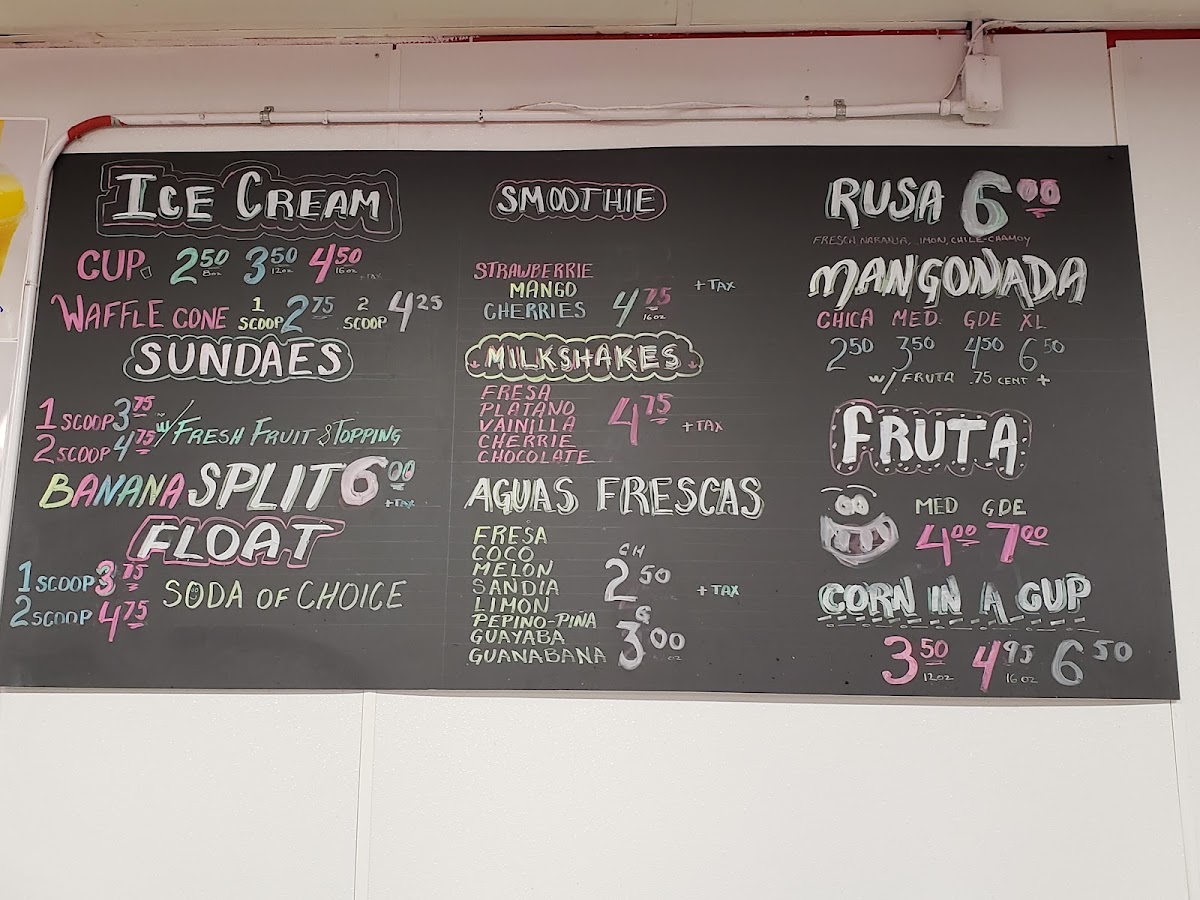 ICE CREAM
CUP 2.50 8oz 3.50 12oz 4.50 16oz + TAX
WAFFLE CONE 1 SCOOP 2.75 2 SCOOP 4.25
SUNDAES
1 SCOOP 3.75 w/ FRESH FRUIT & TOPPING
2 SCOOP 4.75
BANANA SPLIT 6.00
+ TAX
FLOAT
1 SCOOP 3.75 SODA OF CHOICE
2 SCOOP 4.75
SMOOTHIE
STRAWBERRIE
MANGO
CHERRIES 4.75 16oz + TAX
MILKSHAKES
FRESA
PLATANO
VAINILLA 4.75 + TAX
CHERRIE
CHOCOLATE
AGUAS FRESCAS
FRESA
COCO CH
MELON 2.50
SANDIA + TAX
LIMON G
PEPINO-PIÑA 3.00
GUAYABA
GUANABANA
RUSA 6.00
FRESCA NARANJA, LIMON, CHILE-CHAMOY
MANGONADA
CHICA MED. GDE XL
2.50 3.50 4.50 6.50
w/ FRUTA .75 CENT +
FRUTA
MED GDE
4.00 7.00
CORN IN A CUP
3.50 12oz 4.95 16 oz 6.50